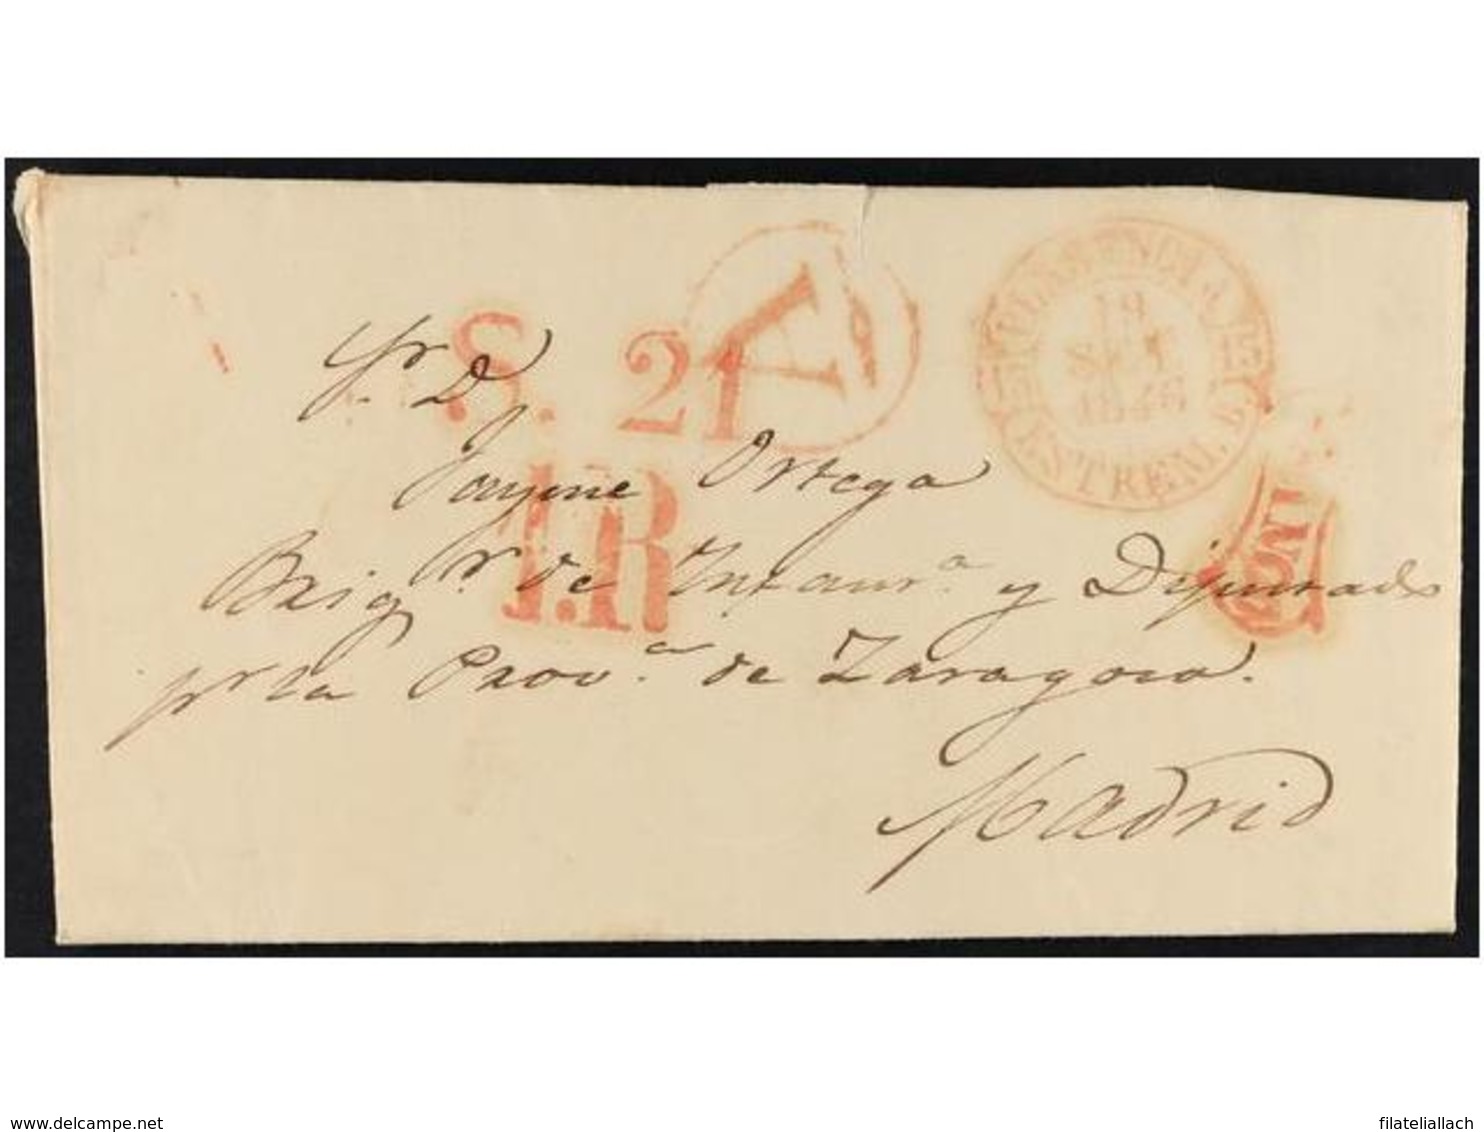 A
PLASENCIA
15
19
SET
1846
ESTREM. B
S. 21
1.R
Sr. D.
Jayme Ortega
Brigr. de Infanra. y Diputado
pr. la Prova. de Zaragoza.
Madrid
www.delcampe.net
filateliallach